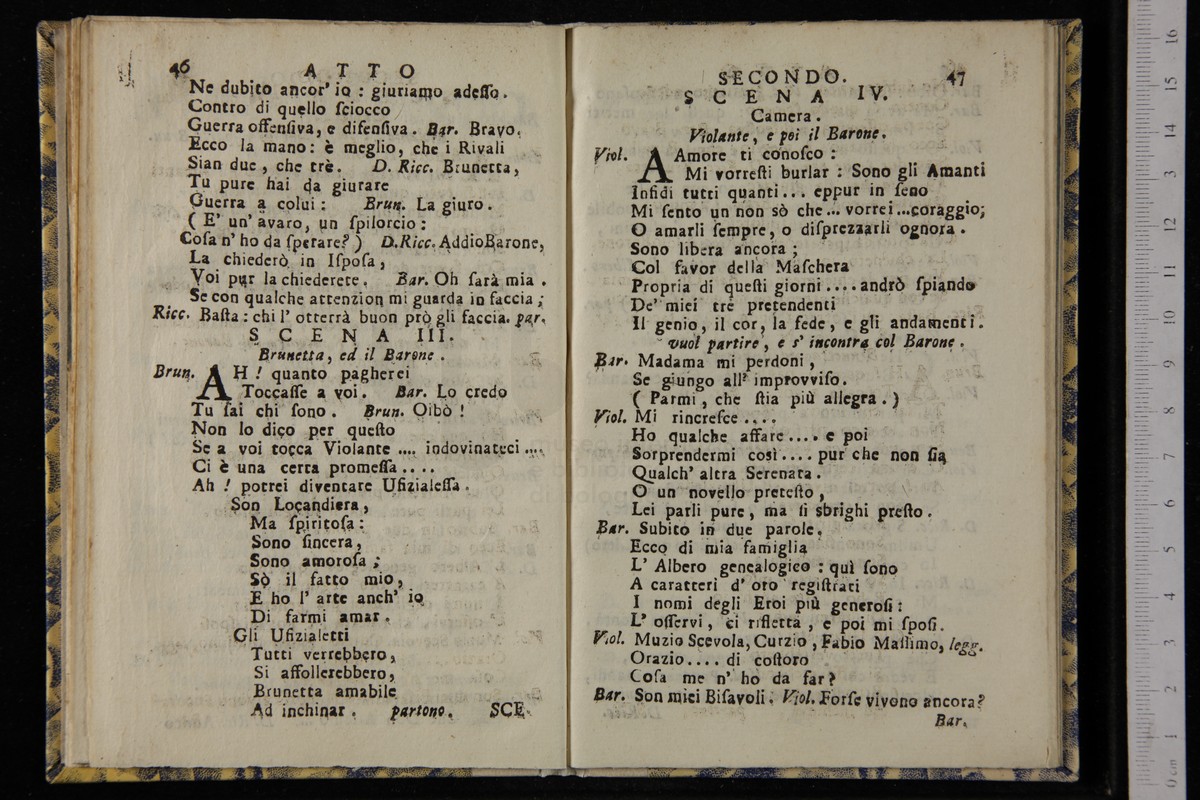 46 ATTO
Ne dubito ancor' io : giuriamo adeſſo.
Contro di quello ſciocco
Guerra offenſiva, e difenſiva. Bar. Bravo.
Ecco la mano: è meglio, che i Rivali
Sian due, che trè. D. Ricc. Brunetta,
Tu pure hai da giurare
Guerra a colui : Brun. La giuro.
( E' un' avaro, un ſpilorcio :
Coſa n' ho da ſperare? ) D.Ricc. Addio Barone,
La chiederò in Iſpoſa,
Voi pur la chiederete. Bar. Oh ſarà mia.
Se con qualche attenzion mi guarda in faccia ;
Ricc. Baſta: chi l' otterrà buon prò gli faccia. par.
SCENA III.
Brunetta, ed il Barone.
Brun. AH ! quanto pagherei
Toccaſſe a voi. Bar. Lo credo
Tu ſai chi ſono. Brun. Oibò !
Non lo dico per queſto
Se a voi tocca Violante .... indovinateci ....
Ci è una certa promeſſa ....
Ah ! potrei diventare Ufizialeſſa.
Son Locandiera,
Ma ſpiritoſa :
Sono ſincera,
Sono amoroſa ;
Sò il fatto mio,
E ho l' arte anch' io
Di farmi amar.
Gli Ufizialetti
Tutti verrebbero,
Si affollerebbero,
Brunetta amabile
Ad inchinar. partono. SCE-
SECONDO. 47
SCENA IV.
Camera.
Violante, e poi il Barone.
Viol. AAmore ti conoſco :
Mi vorreſti burlar : Sono gli Amanti
Infidi tutti quanti... eppur in ſeno
Mi ſento un non sò che... vorrei...coraggio;
O amarli ſempre, o diſprezzarli ognora.
Sono libera ancora ;
Col favor della Maſchera
Propria di queſti giorni .... andrò ſpiando
De' miei trè pretendenti
Il genio, il cor, la fede, e gli andamenti.
vuol partire, e s' incontra col Barone.
Bar. Madama mi perdoni,
Se giungo all' improvviſo.
( Parmi, che ſtia più allegra. )
Viol. Mi rincreſce ....
Ho qualche affare .... e poi
Sorprendermi così .... pur che non ſia
Qualch' altra Serenata.
O un novello preteſto,
Lei parli pure, ma ſi sbrighi preſto.
Bar. Subito in due parole.
Ecco di mia famiglia
L' Albero genealogico : quì ſono
A caratteri d' oro regiſtrati
I nomi degli Eroi più generoſi :
L' oſſervi, ci rifletta, e poi mi ſpoſi.
Viol. Muzio Scevola, Curzio, Fabio Maſſimo, legg.
Orazio .... di coſtoro
Coſa me n' ho da far ?
Bar. Son miei Biſavoli. Viol. Forſe vivono ancora?
Bar.
16
15
14
13
12
11
10
9
8
7
6
5
4
3
2
1
0 cm